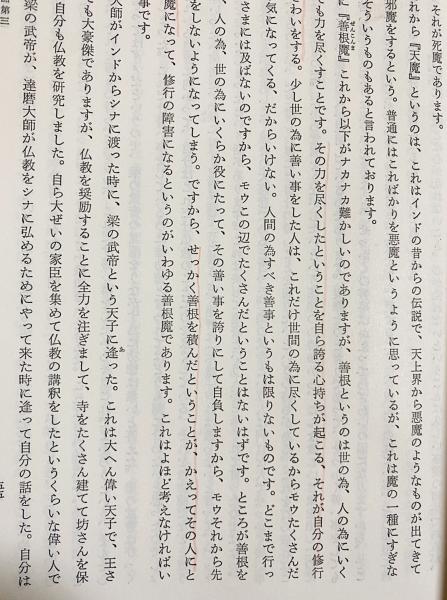 それが死魔であります。
れから『天魔』というのは、これはインドの昔からの伝説で、天上界から悪魔のようなものが出てきて
邪魔をするという。普通にはこればかりを悪魔というように思っているが、これは魔の一種にすぎな
そういうものもあると言われております。
に『善根魔』これから以下がナカナカ難かしいのでありますが、善根というのは世の為、人の為にいく
ぜんこんま
ても力を尽くすことです。その力を尽くしたということを自ら誇る心持ちが起こる、それが自分の修行
わいをする。少し世の為に善い事をした人は、これだけ世間の為に尽くしているからモウたくさんだ
気になってくる、だからいけない。人間の為すべき善事というもは限りないものです。どこまで行っ
さまには及ばないのですから、モウこの辺でたくさんだということはないはずです。ところが善根を
、人の為、世の為にいくらか役にたって、その善い事を誇りにして自負しますから、モウそれから先
をしないようになってしまう。ですから、せっかく善根を積んだということが、かえってその人にと
魔になって、修行の障害になるというのがいわゆる善根魔であります。これはよほど考えなければい
事です。
大師がインドからシナに渡った時に、梁の武帝という天子に逢った。これは大へん偉い天子で、王さ
あ
ても大豪傑でありますが、仏教を奨励することに全力を注ぎまして、寺をたくさん建てて坊さんを保
自分も仏教を研究しました。自ら大ぜいの家臣を集めて仏教の講釈をしたというくらいな偉い人で
梁の武帝が、達磨大師が仏教をシナに弘めるためにやって来た時に逢って自分の話をした。自分は
第三
五五